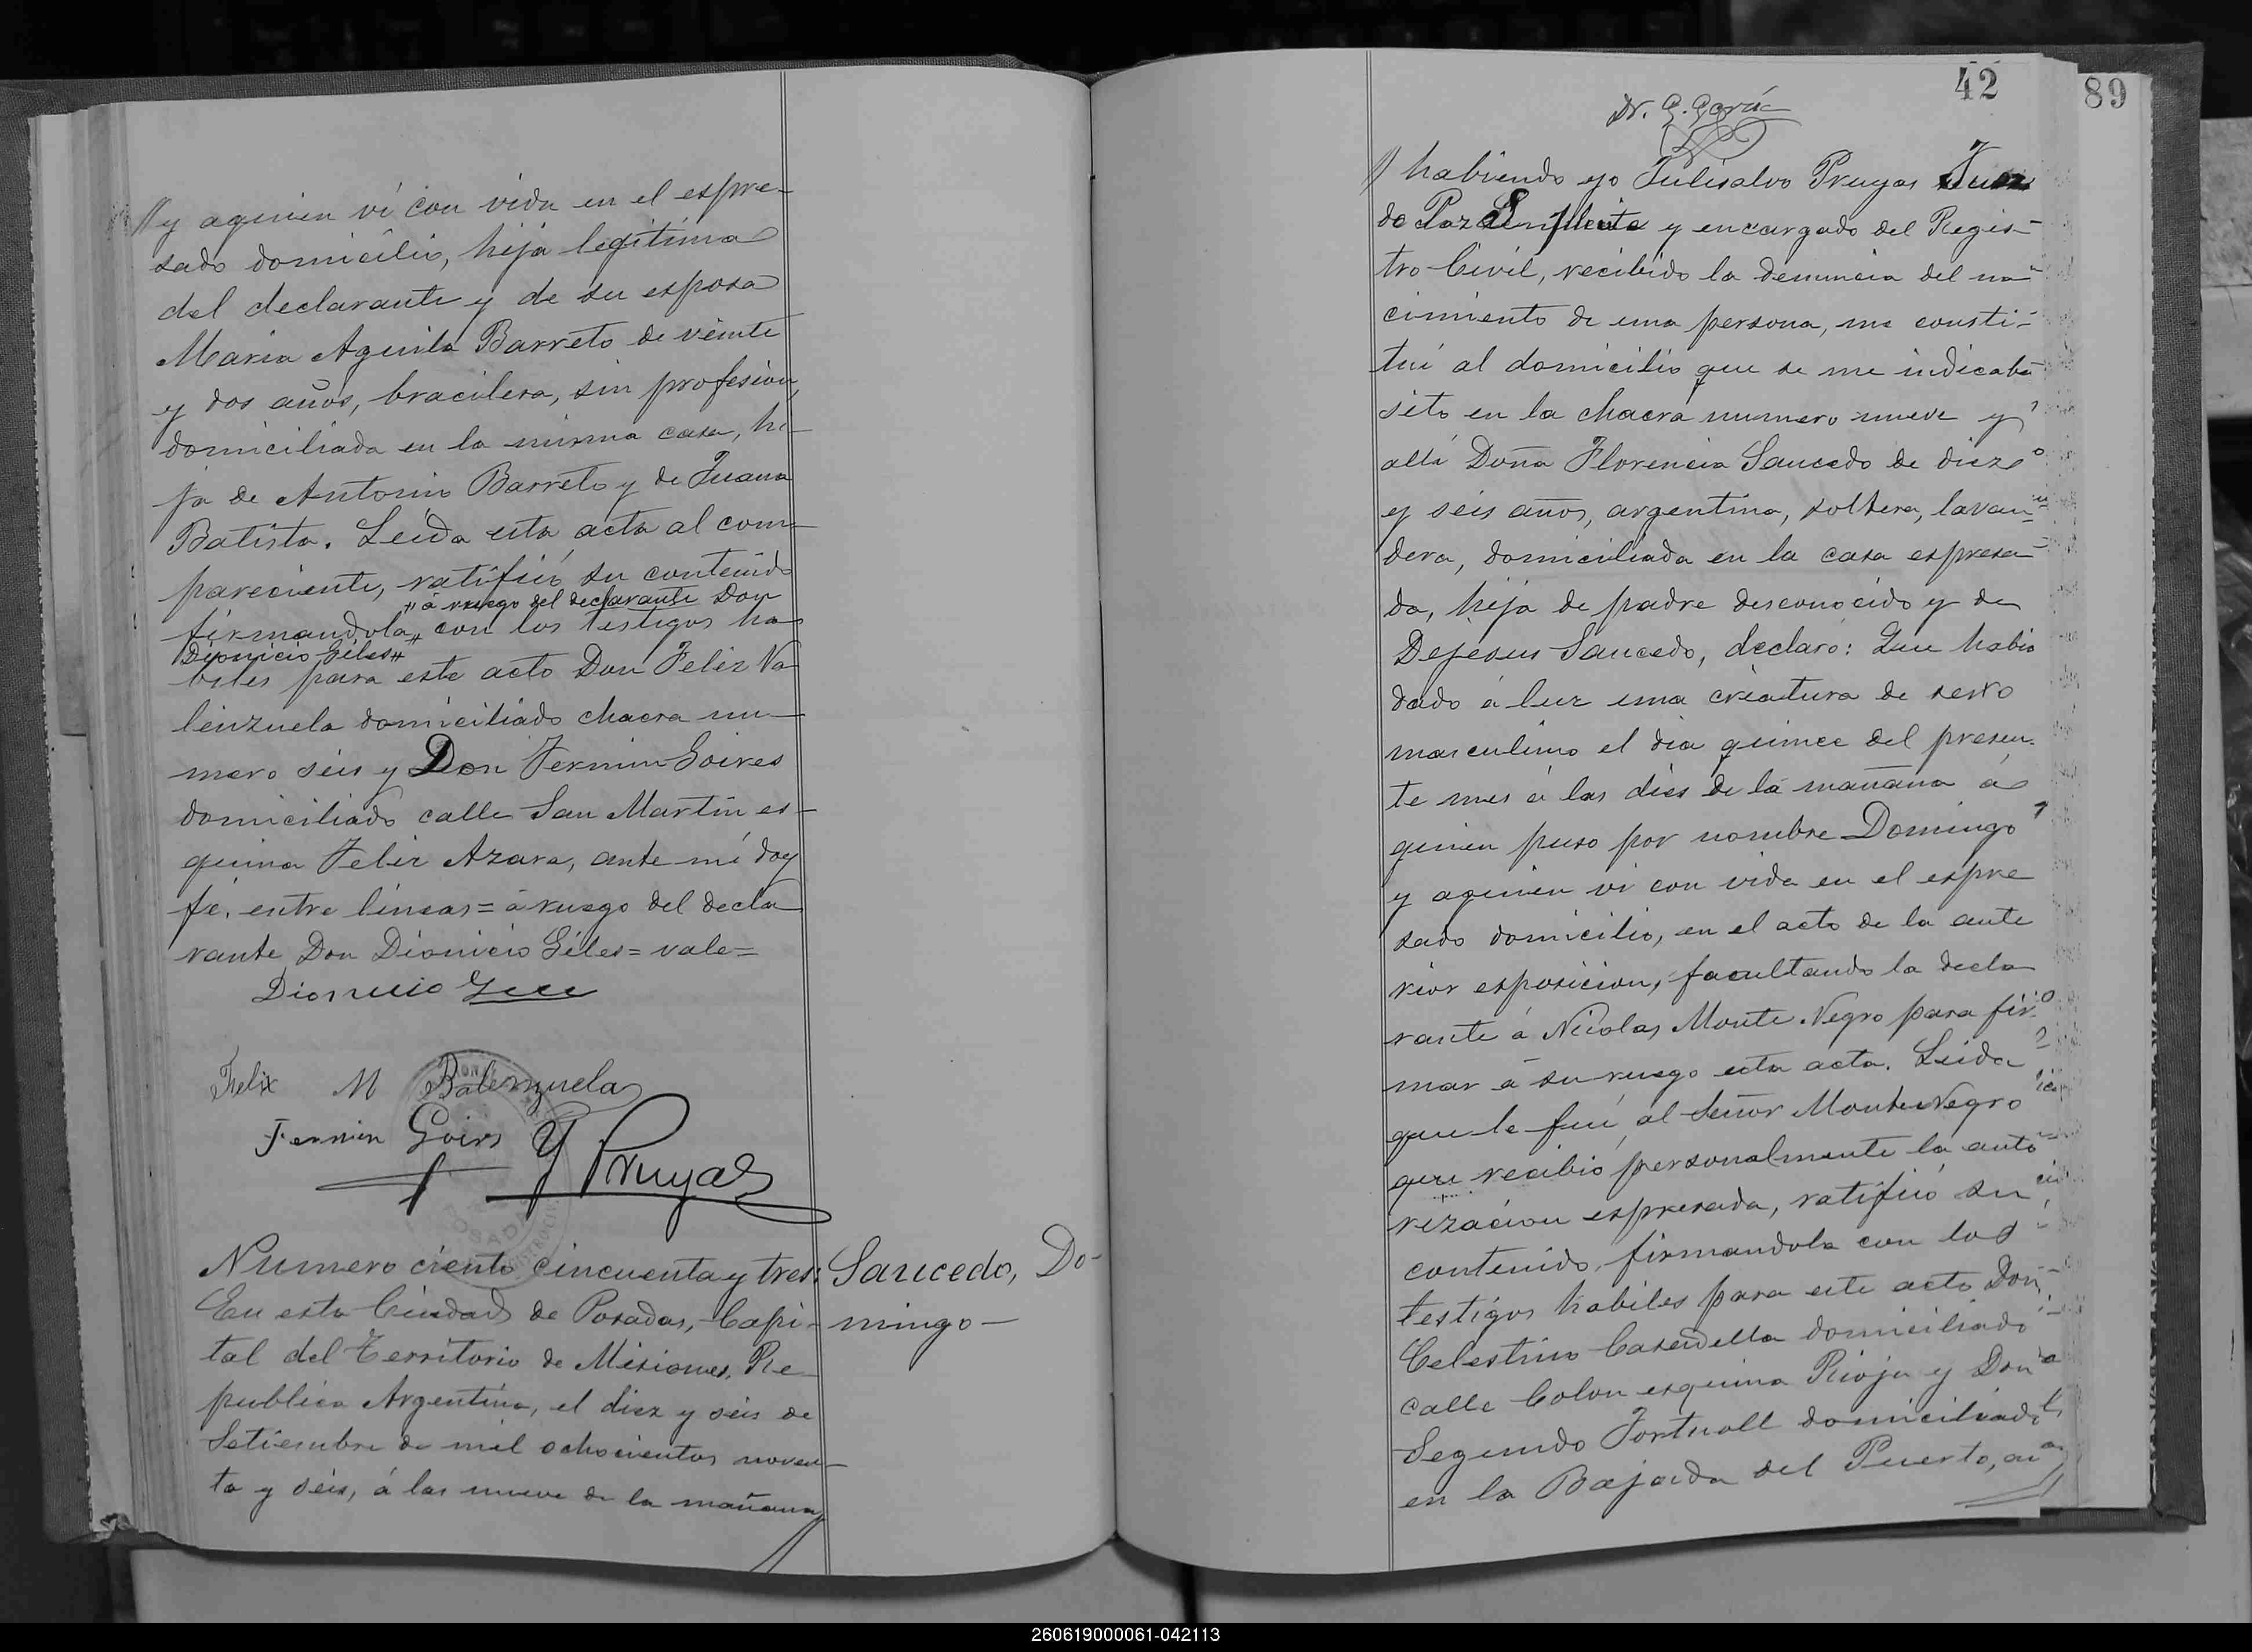 // y aquien ví con vida en el espre-
sado domicilio, hija legítima
del declarante y de su esposa
Maria Aguila Barreto de veinte
y dos años, bracilera, sin profesion,
domiciliada en la misma casa, hi-
ja de Antonio Barreto y de Juana
Batista. Leida esta acta al com-
pareciente, ratificó su contenido
" á ruego del declarante Don
firmandola " con los testigos ha-
Dionicio Giles "
biles para este acto Don Feliz Va-
lenzuela domiciliado chacra nu-
mero seis y Don Fermin Goires
domiciliado calle San Martin es-
quina Feliz Azara, ante mí doy
fé. entre lineas = á ruego del decla
rante Don Dionicio Giles = vale =
Dionicio
Felix M Balenzuela
Fermin Goirs
Pruyas
Numero ciento cincuenta y tres:
En esta Ciudad de Posadas, Capi-
tal del Territorio de Misiones, Re-
publica Argentina, el diez y seis de
Setiembre de mil ochocientos noven-
ta y seis, á las nueve de la mañana
Saucedo, Do-
mingo -
42
89
// habiendo yo Tulisalvo Pruyas Juez
de Paz Suplente y encargado del Regis-
tro Civil, recibido la denuncia del na-
cimiento de una persona, me consti-
tui al domicilio que se me indicaba
sito en la chacra numero nueve y
allí Doña Florencia Saucedo de diez
y seis años, argentina, soltera, lavan-
dera, domiciliada en la casa espresa-
da, hija de padre desconocido y de
Dejesus Saucedo, declaró: Que habia
dado á luz una criatura de sexo
masculino el dia quince del presen-
te mes á las dies de la mañana á
quien puso por nombre Domingo
y aquien vi con vida en el espre
sado domicilio, en el acto de la ante
rior esposicion, facultando la decla
rante á Nicolas Monte Negro para fir-
mar á su ruego esta acta. Leida
que le fué al Señor Monte Negro
que recibió personalmente la auto
rizacion espresada, ratificó su
contenido, firmandola con los
testigos habiles para este acto Don
Celestino domiciliado
calle Colon esquina Rioja y Don
Segundo domiciliado
en la Bajada del Puerto, an
260619000061-042113